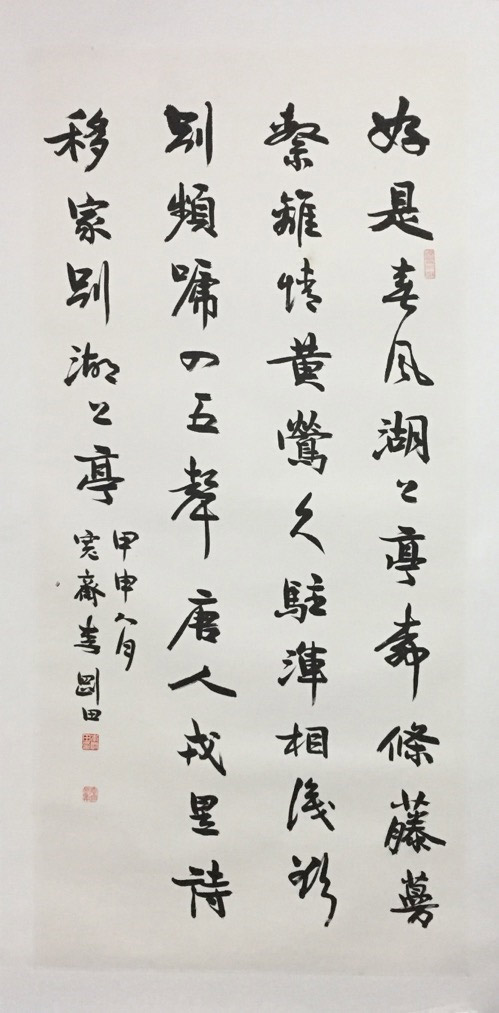 好是春風湖上亭柳條藤蔓
繫離情黄鶯久駐渾相識欲
别頻嗁四五聲唐人戎昱詩
移家别湖上亭
甲申八月
寬齋李剛田